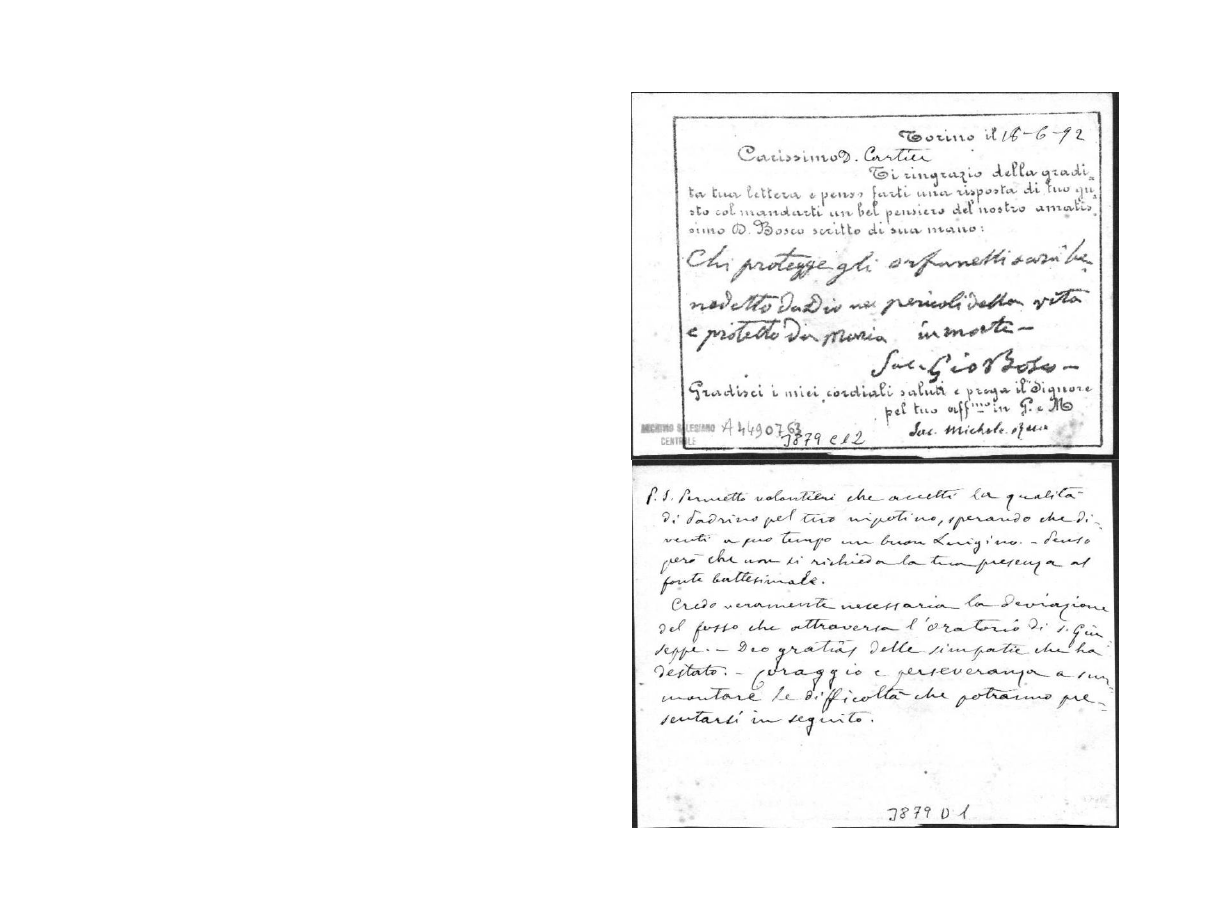 Torino il 18-6-92
Carissimo D. Cartier
Ti ringrazio della gradi=
ta tua lettera e penso farti una risposta di tuo gu=
sto col mandarti un bel pensiero del nostro amatis=
simo D. Bosco scritto di sua mano:
Chi protegge gli orfanelli sarà be
nedetto da Dio nei pericoli della vita
e protetto da Maria in morte –
Sac. Gio Bosco –
Gradisci i miei cordiali saluti e prega il Signore
pel tuo aff.mo in G. e M
Sac. Michele Rua
ARCHIVIO SALESIANO
CENTRALE
A4490763
3879 C12
P. S. Permetto volontieri che accetti la qualità
di Padrino pel tuo nipotino, sperando che di-
venti a suo tempo un buon Luigino. – Penso
però che non si richieda la tua presenza al
fonte battesimale.
Credo veramente necessaria la deviazione
del fosso che attraversa l'Oratorio di S. Giu
seppe. – Deo gratias delle simpatie che ha
destato. – Coraggio e perseveranza a sur
montare le difficoltà che potranno pre-
sentarsi in seguito.
3879 D 1